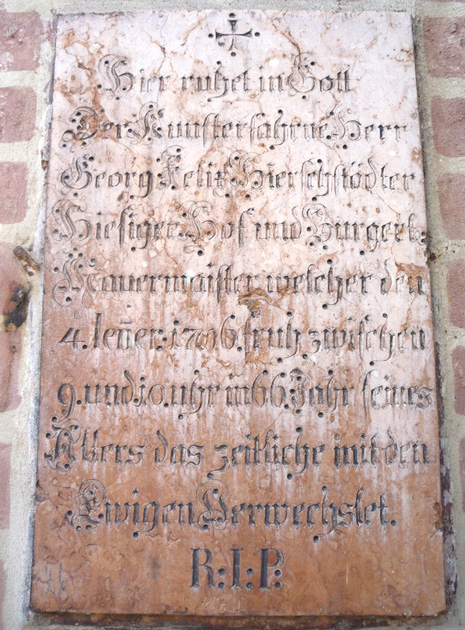 Hier ruhet in Gott
Der Kunsterfahrne Herr
Georg Felix Hierschstödter
Hiesiger Hof und Burgerl:
Mauermaister welcher den
4. Jenner: 1796. fruh zwischen
9. und 10. uhr im 66. Jahr seines
Alters das zeitliche mit den
Ewigen Verwechslet.
R: I: P: